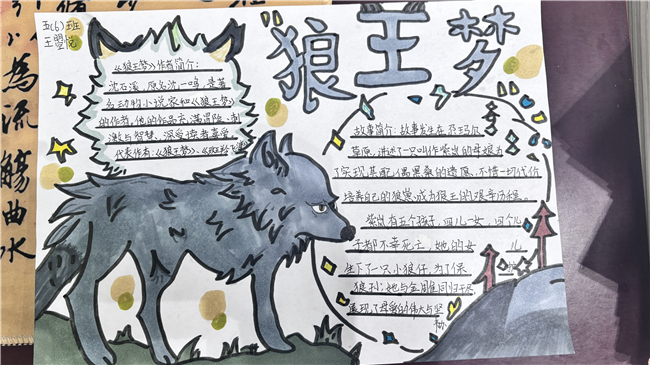 五(6)班
王盟悦
狼王梦
《狼王梦》作者简介:
沈石溪,原名沈一鸣,是著
名动物小说家和《狼王梦》
的作者,他的作品充满冒险、刺
激与智慧,深受读者喜爱。
代表作有:《狼王梦》、《斑羚飞渡
故事简介:故事发生在尕玛尔
草原,讲述了一只叫作紫岚的母狼为
了实现其配偶黑桑的遗愿,不惜一切代价
培养自己的狼崽成为狼王的艰辛历程。
紫岚有五个孩子,四儿一女,四个儿
子都不幸死亡,她的女 儿
生下了一只小狼仔,为了保
狼孙,她与金雕同归于尽
展现了母爱的伟大与坚
為
流
觴
曲
水